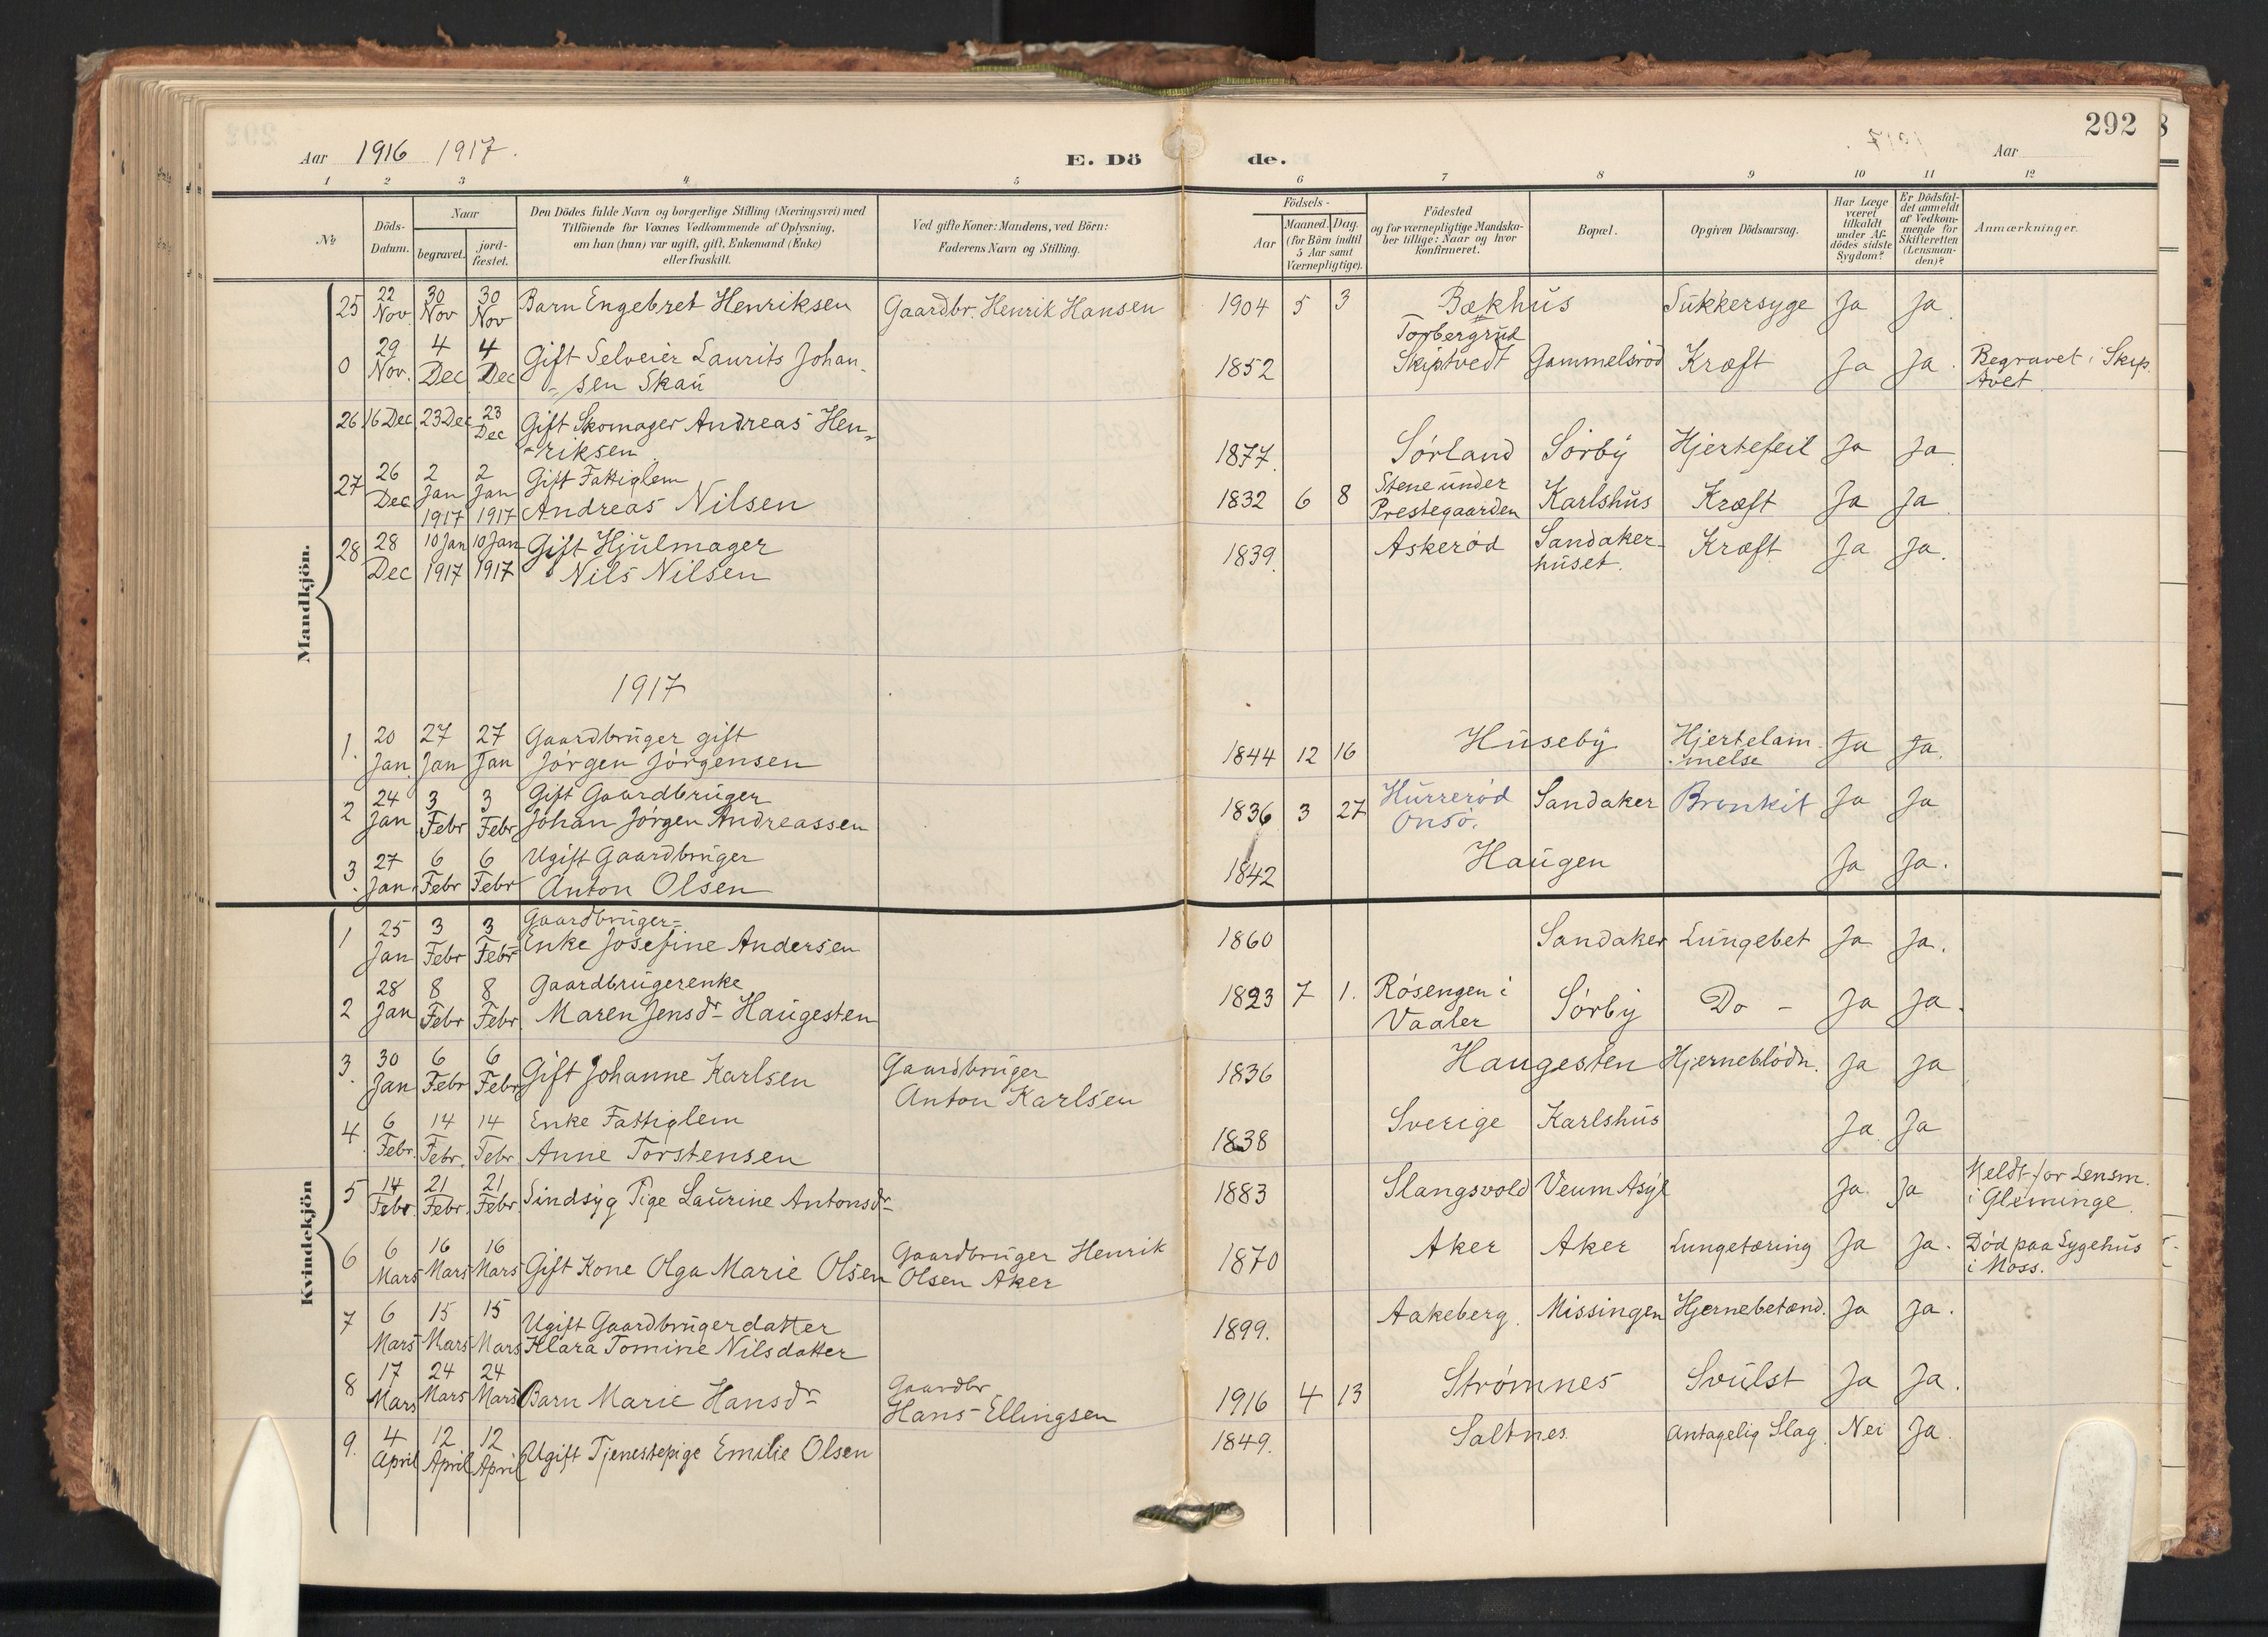 292
Aar 1916 1917. E. Dö de. Aar
1 2 3 4 5 6 7 8 9 10 11 12
No
Döds-Datum.
Naar
begravet.
jord-fæstet.
Den Dödes fulde Navn og borgerlige Stilling (Næringsvei) med
Tilföiende for Voxnes Vedkommende af Oplysning,
om han (hun) var ugift, gift, Enkemand (Enke)
eller fraskilt.
Ved gifte Koner: Mandens, ved Börn:
Faderens Navn og Stilling.
Födsels-
Aar
Maaned. Dag.
(for Börn indtil
5 Aar samt
Værnepligtige).
Födested
og for værnepligtige Mandska-
ber tillige: Naar og hvor
konfirmeret.
Bopæl.
Opgiven Dödsaarsag.
Har Læge
været
tilkaldt
under Af-
dödes sidste
Sygdom?
Er Dödsfal-
det anmeldt
af Vedkom-
mende for
Skifteretten
(Lensman-
den)?
Anmærkninger.
Mandkjön.
25 22 Nov. 30 Nov 30 Nov Barn Engebret Henriksen Gaardbr. Henrik Hansen 1904 5 3 Bækhus Sukkersyge Ja Ja.
0 29 Nov. 4 Dec 4 Dec Gift Selveier Laurits Johan-
-sen Skau 1852 Torbergrud
Skiptvedt Gammelsröd Kræft Ja Ja. Begravet i Skip-
tvet.
26 16 Dec. 23 Dec 23 Dec Gift Skomager Andreas Hen-
-riksen 1877. Sørland Sørby Hjertefeil Ja Ja
27 26 Dec 2 Jan 1917 2 Jan 1917 Gift Fattiglem
Andreas Nilsen 1832 6 8 Stene under
Prestegaarden Karlshus Kræft Ja Ja
28 28 Dec 10 Jan 1917 10 Jan 1917 Gift Hjulmager
Nils Nilsen 1839. Askerød Sandaker-
huset. Kræft Ja Ja.
1917
1. 20 Jan. 27 Jan 27 Jan Gaardbruger gift
Jørgen Jørgensen 1844 12 16 Huseby Hjertelam-
melse Ja Ja.
2 24 Jan 3 Febr 3 Febr Gift Gaardbruger
Johan Jørgen Andreassen 1836 3 27 Hurrerød
Onsø. Sandaker Bronkit Ja Ja
3. 27 Jan. 6 Febr 6 Febr Ugift Gaardbruger
Anton Olsen 1842 Haugen Ja Ja.
Kvindekjön
1 25 Jan 3 Febr 3 Febr Gaardbruger-
Enke Josefine Andersen 1860 Sandaker Lungebet Ja Ja.
2 28 Jan 8 Febr 8 Febr. Gaardbrugerenke
Maren Jensdr Haugesten 1823 7 1. Røsengen i
Vaaler Sørby Do - Ja Ja.
3. 30 Jan 6 Febr 6 Febr Gift Johanne Karlsen Gaardbruger
Anton Karlsen 1836 Haugesten Hjerneblødn. Ja Ja
4. 6 Febr. 14 Febr. 14 Febr Enke Fattiglem
Anne Torstensen 1838 Sverige Karlshus Ja Ja
5 14 Febr. 21 Febr. 21 Febr. Sindsyg Pige Laurine Antonsdr 1883 Slangsvold Veum Asyl Ja. Ja Meldt for Lensm.
i Glemminge.
6 6 Mars 16 Mars 16 Mars Gift Kone Olga Marie Olsen Gaardbruger Henrik
Olsen Aker 1870 Aker Aker Lungetæring Ja Ja. Död paa Sygehus
i Moss.
7 6 Mars 15 Mars 15 Mars Ugift Gaardbrugerdatter
Klara Tomine Nilsdatter 1899. Aakeberg. Missingen Hjernebetænd. Ja Ja.
8 17 Mars 24 Mars 24 Mars Barn Marie Hansdr Gaardbr
Hans Ellingsen 1916 4 13 Strømnes Svulst Ja Ja.
9. 4 April 12 April 12 April Ugift Tjenestepige Emilie Olsen 1849. Saltnes. Antagelig Slag. Nei Ja.